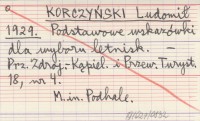 KORCZYŃSKI Ludomił
1929. Podstawowe wskazówki
dla wyboru letnisk. —
Prz. Zdroj.-Kąpiel. i Przew. Turyst.
18, nr 4.
M.in. Podhale.